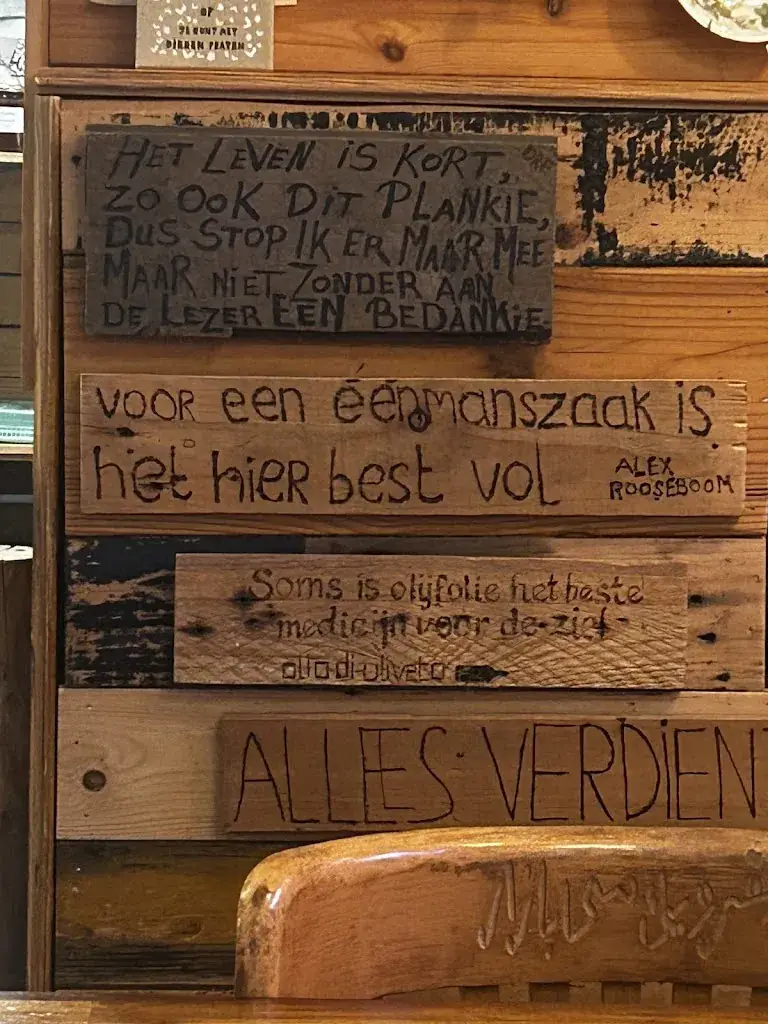 OF
DIEREN PRATEN
HET LEVEN IS KORT,
ZO OOK DIT PLANKIE,
DUS STOP IK ER MAAR MEE
MAAR NIET ZONDER AAN
DE LEZER EEN BEDANKIE.
voor een éénmanszaak is
het hier best vol
ALEX
ROOSEBOOM
Soms is olijfolie het beste
medicijn voor de ziel
olio di oliveto
ALLES VERDIENT